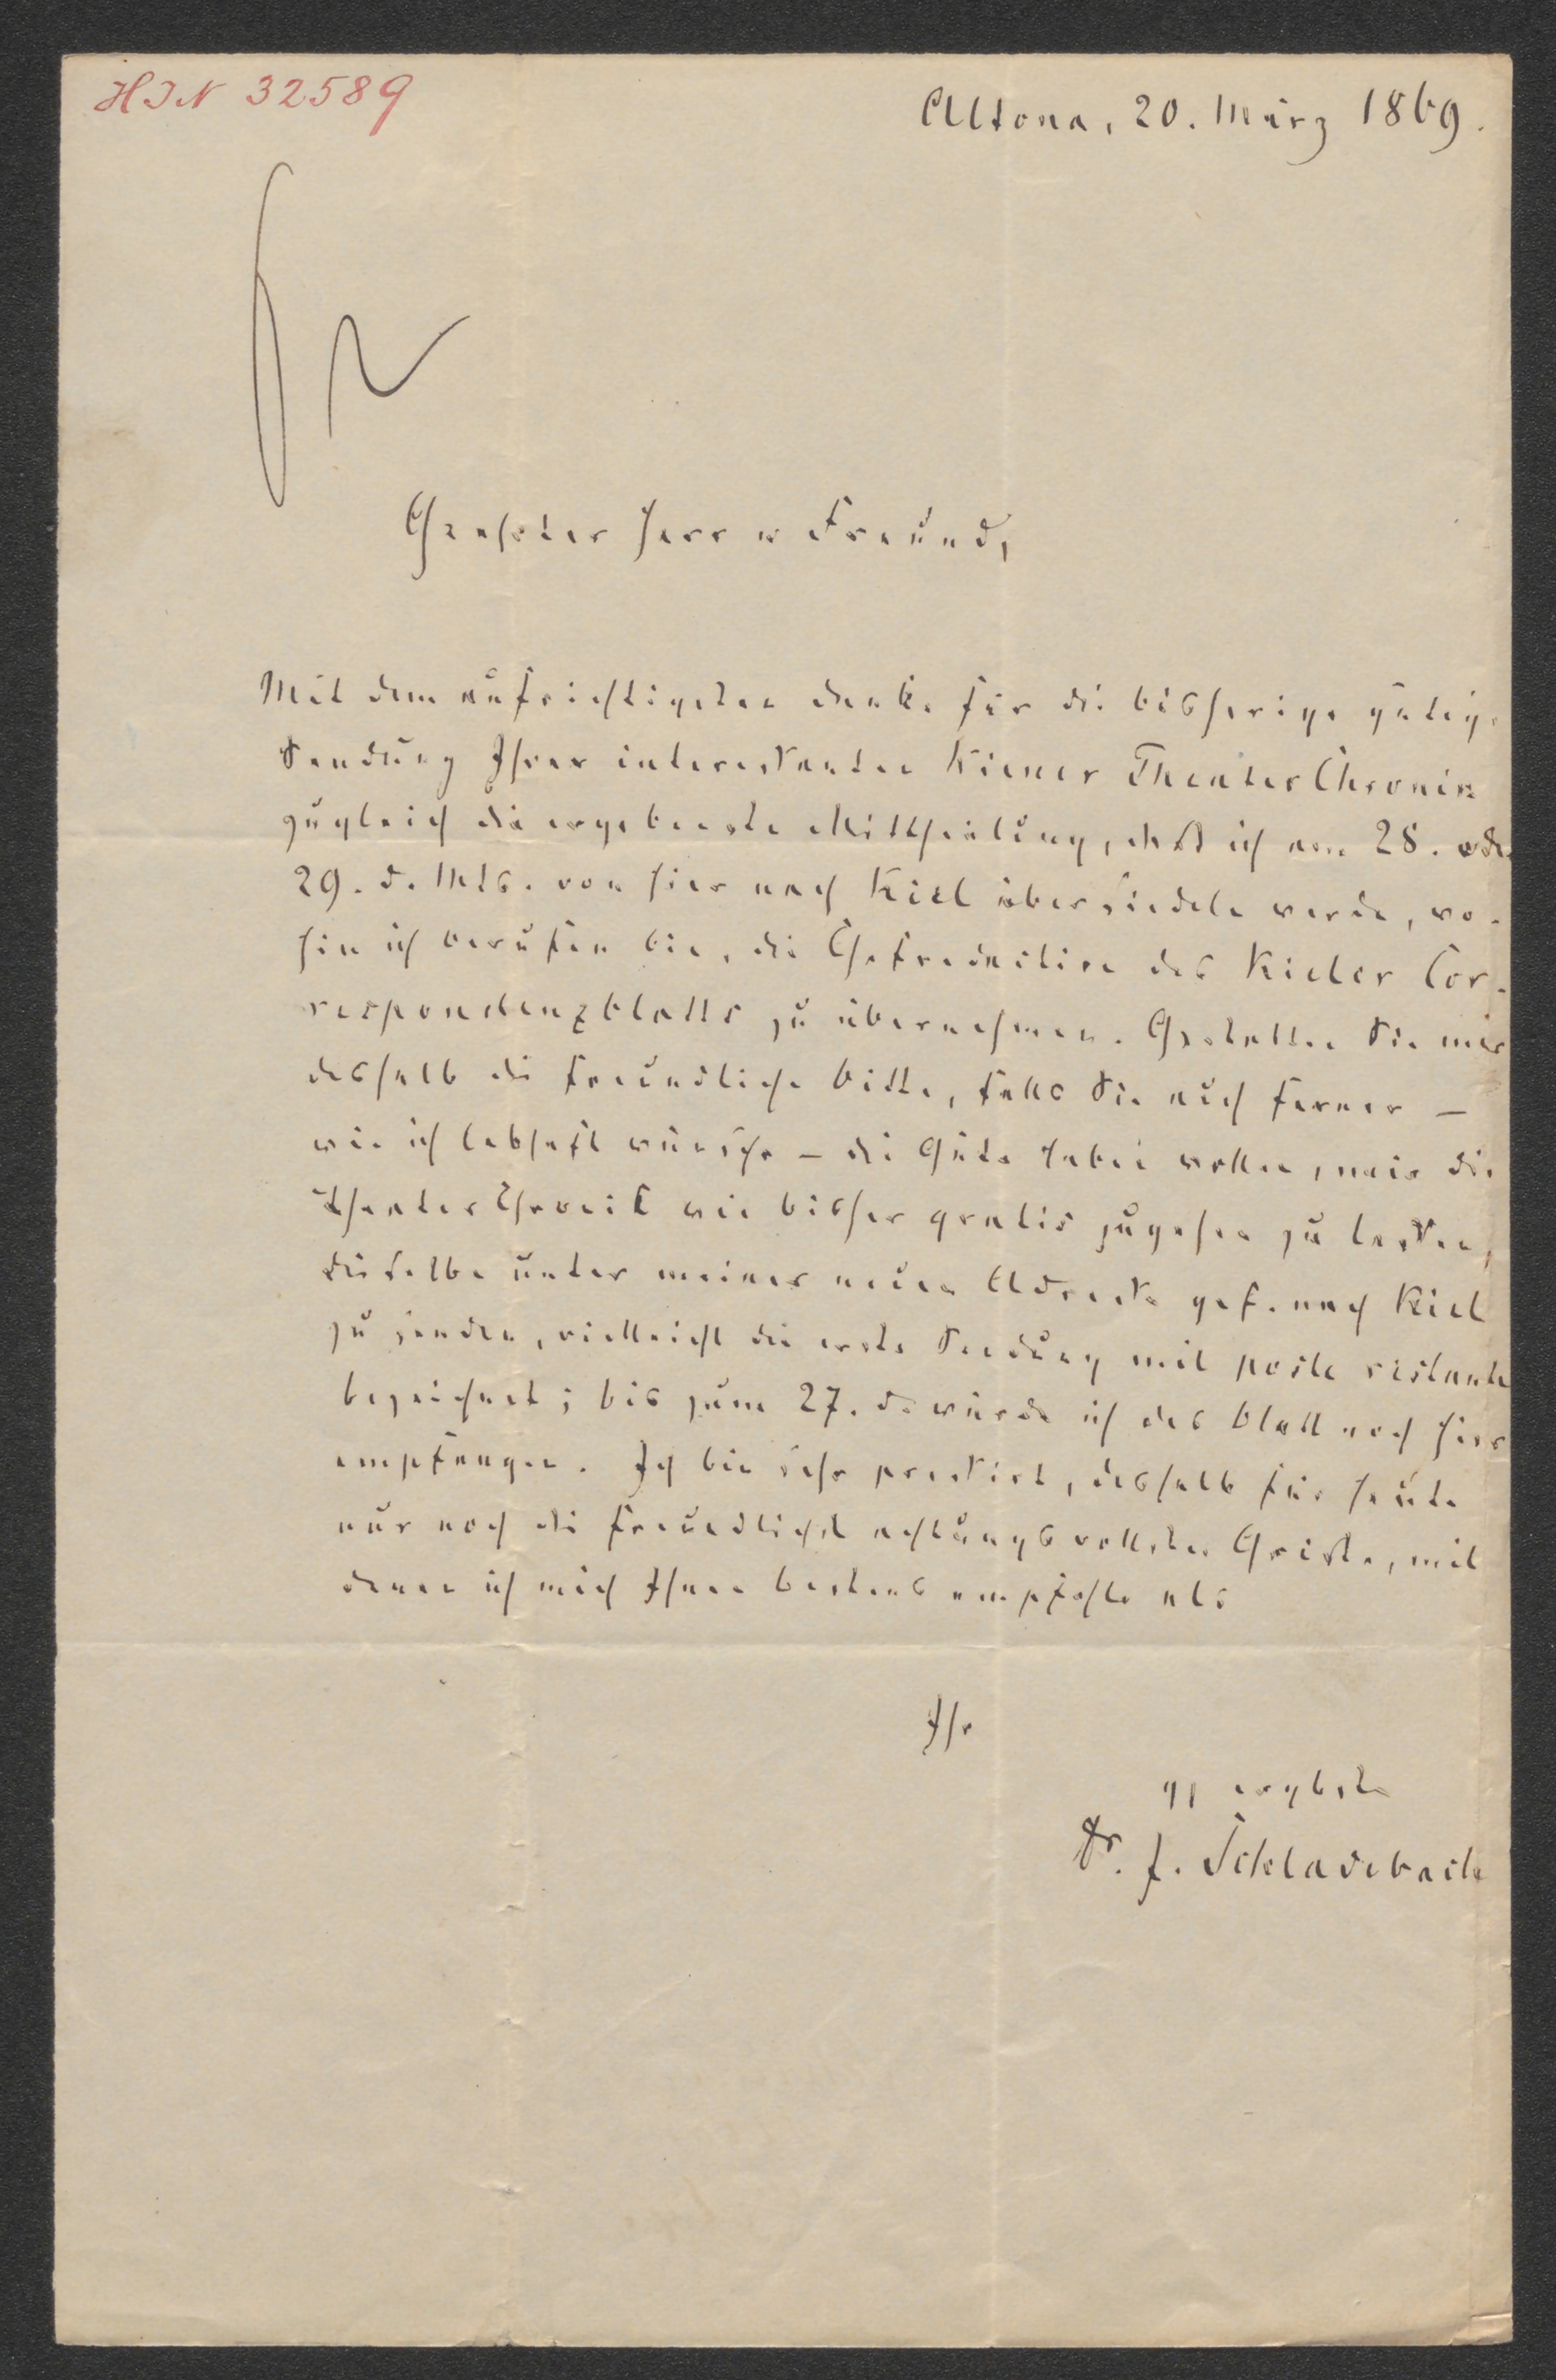 HIN 32589
Altona, 20. März 1869.
Geehrter Herr u Freund,
Mit dem aufrichtigsten Danke für die bisherige gütige
Sendung Ihrer interessanten Wiener Theater Chronik
zugleich die ergebenste Mittheilung, daß ich am 28. oder
29. d. Mts. von hier nach Kiel übersiedele werde, wo-
hin ich berufen bin, die Chefredaction des Kieler Cor-
respondenzblatts zu übernehmen. Gestatten Sie mir
deshalb die freundliche Bitte, falls Sie auch ferner –
wie ich lebhaft wünsche – die Güte haben wollen, mir die
Theater Chronik wie bisher gratis zugehen zu lassen,
dieselbe unter meiner neuen Adresse gef. nach Kiel
zu senden, vielleicht die erste Sendung mit poste restante
bezeichnet; bis zum 27. d. würde ich das Blatt noch hier
empfangen. Ich bin sehr pressirt, deshalb für heute
nur noch die freundlichst achtungsvollsten Grüße, mit
denen ich mich Ihnen bestens empfehle als
Ihr
ergbste
Dr. J. Schladebach